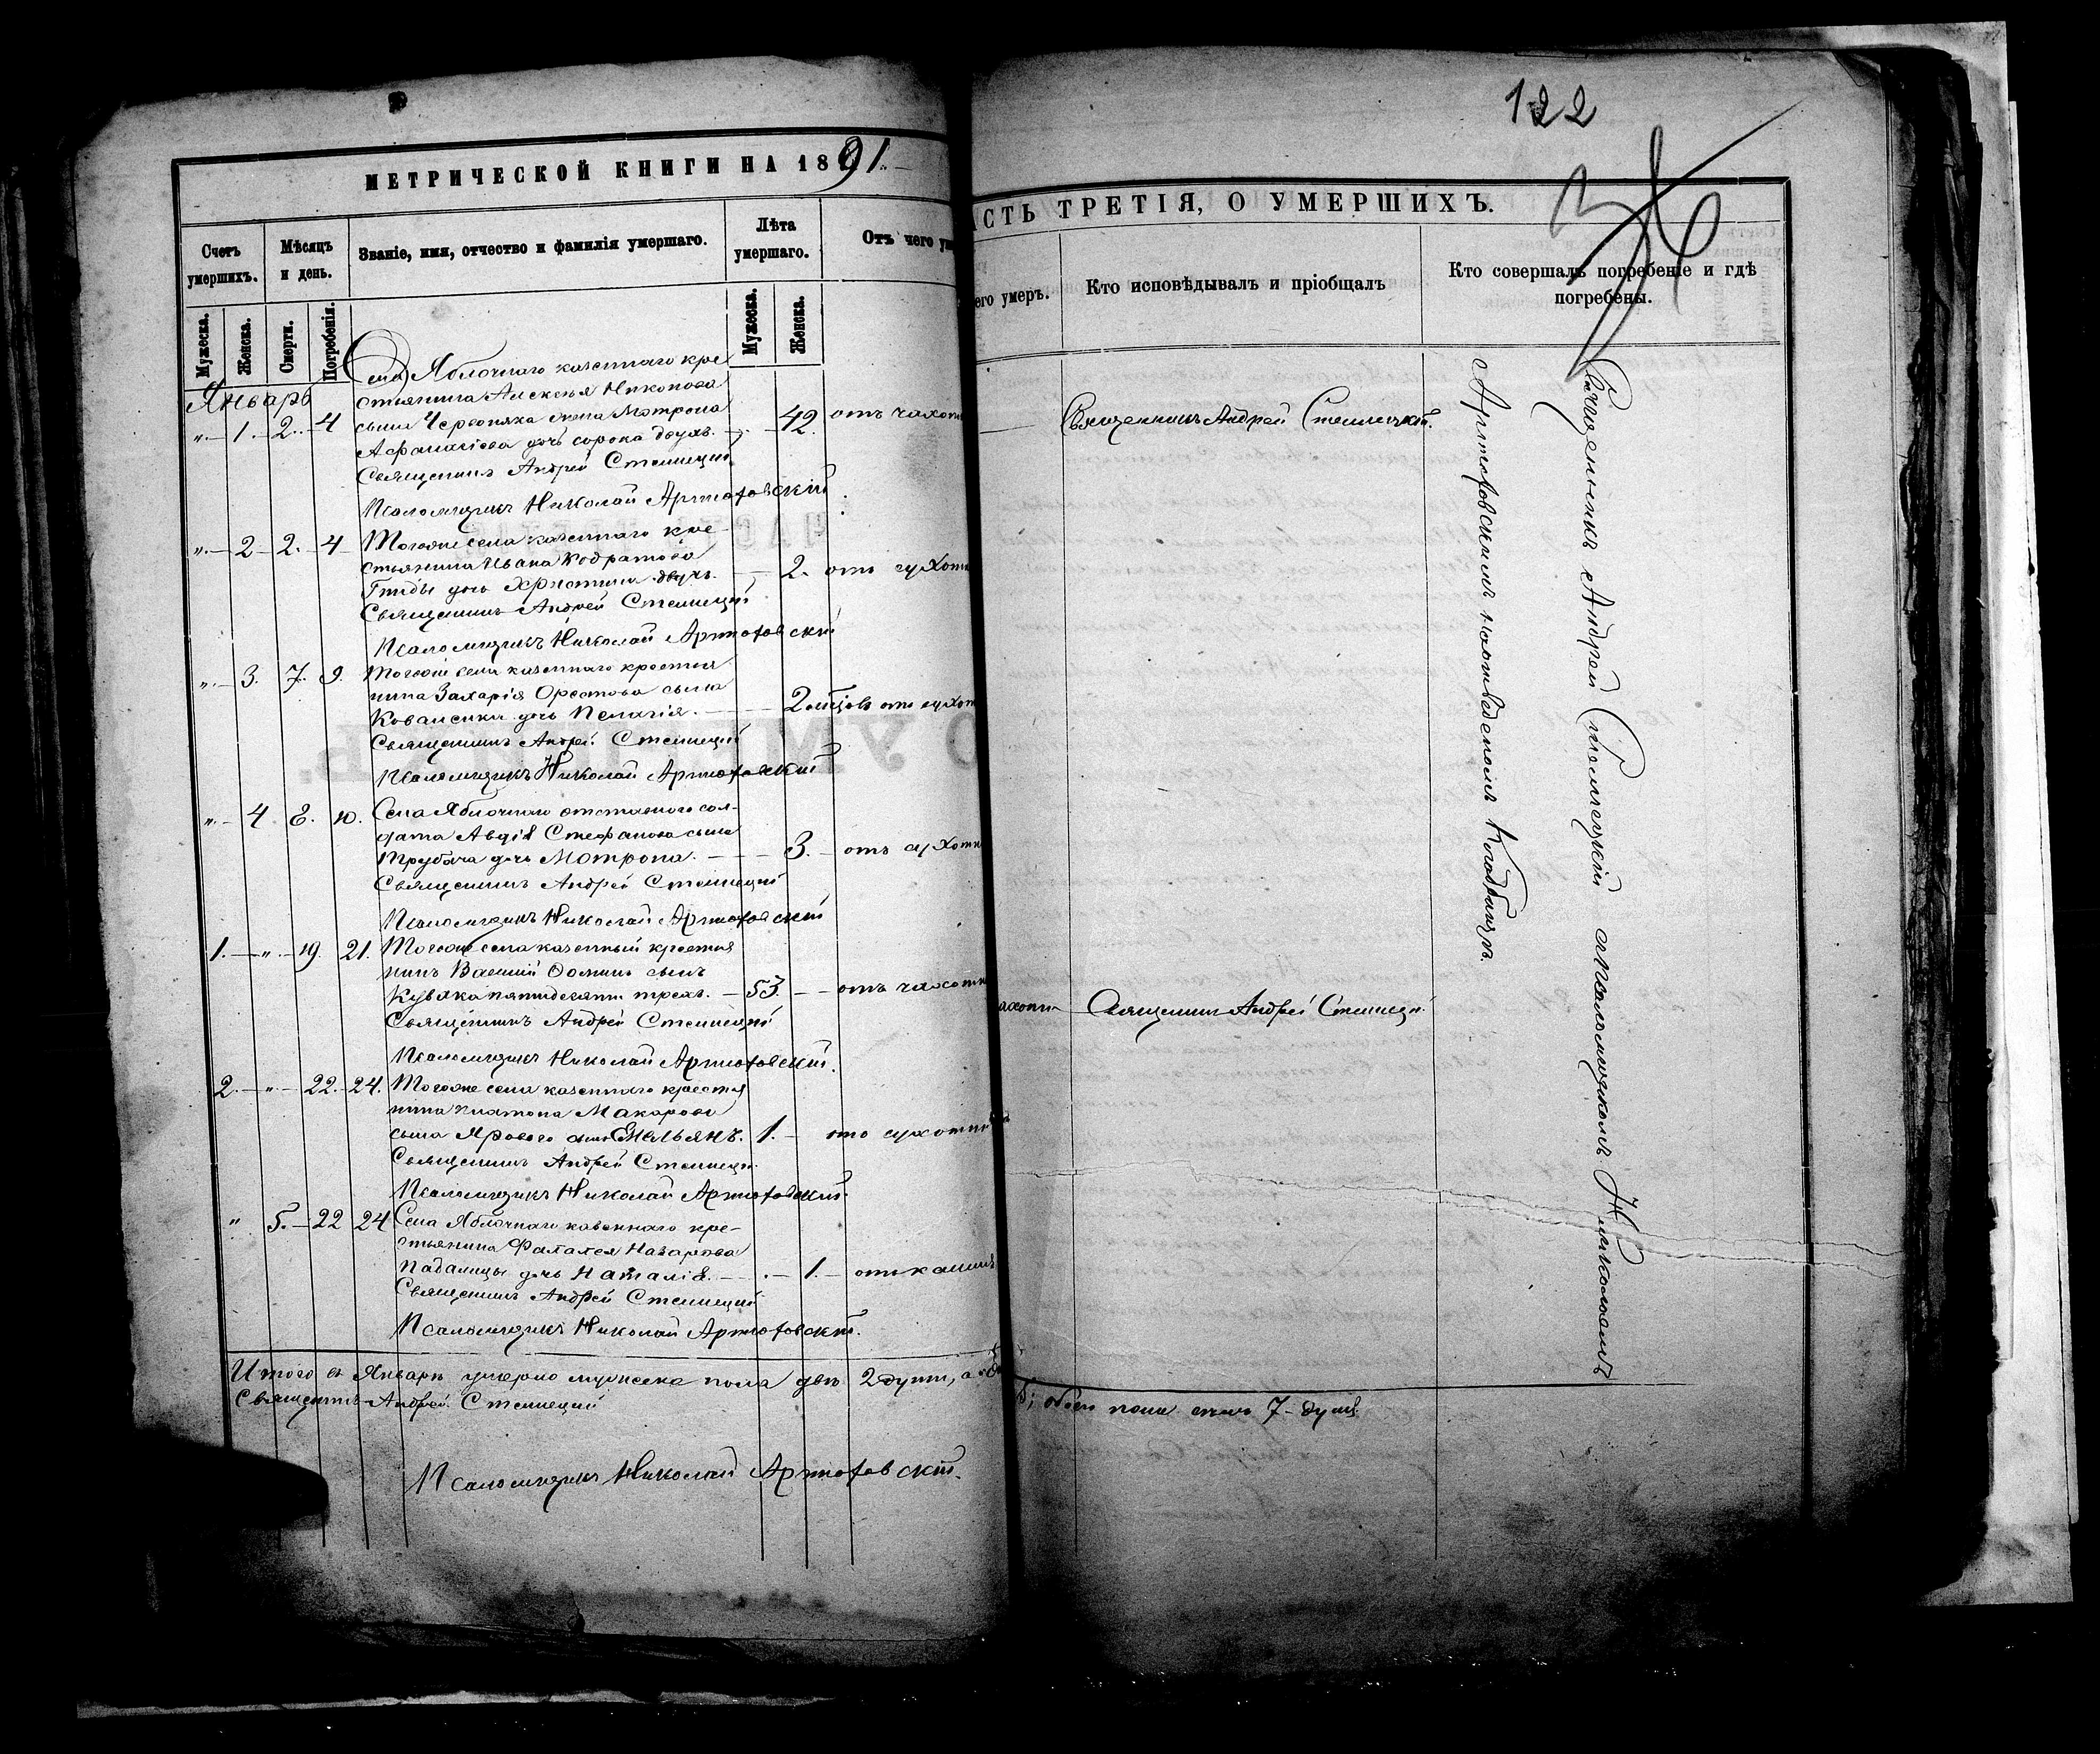 МЕТРИЧЕСКОЙ КНИГИ НА 1891.
Счетъ умершихъ.
Мѣсяцъ и день.
Званіе, имя, отчество и фамилія умершаго.
Лѣта умершаго.
Отъ чего
Мужеска.
Женска.
Смерти.
Погребенія.
Мужеска.
Женска.
Январь
Села Яблочнаго казеннаго кре
стьянина Алексѣя Никонова
„ 1. 2. 4 сына Червоняка жена Мотрона 42. отъ
Афанасіева дочь сорока двухъ.
Священникъ Андрей Стеллецкій
Псаломщикъ Николай Артюховскій
„ 2 2. 4 Тогоже села казеннаго кре-
стьянина Ивана Кодратова
дочь Христина двухъ. 2. отъ
Священникъ Андрей Стеллецкій
Псаломщикъ Николай Артюховскій
„ 3. 7. 9. Тогоже села казеннаго крестья
нина Захарія Орестова сына
Коваленка дочь Пелагія. 2 отъ
Священникъ Андрей Стеллецкій
Псаломщикъ Николай Артюховскій
„ 4 8. 10. Села Яблочнаго отставного сол-
дата Авдія Стефанова сына
Трубача дочь Мотрона. 3. отъ
Священникъ Андрей Стеллецкій
Псаломщикъ Николай Артюховскій
1. „ 19. 21. Тогоже села казенный крестья
нинъ Василій Ѳоминъ сынъ
пятидесяти трехъ. 53. отъ
Священникъ Андрей Стеллецкій
Псаломщикъ Николай Артюховскій.
2. „ 22. 24. Тогоже села казеннаго крестья
нина Платона Макарова
сына Ярового сынъ Емельянъ. 1. отъ
Священникъ Андрей Стеллецкій
Псаломщикъ Николай Артюховскій.
„ 5. 22 24 Села Яблочнаго казеннаго кре-
стьянина Фалалея Назарова
Падалицы дочь Наталія. 1. отъ кашля
Священникъ Андрей Стеллецкій
Псаломщикъ Николай Артюховскій.
Итого въ Январѣ умерло мужеска пола двѣ 2 души, а
Священникъ Андрей Стеллецкій
Псаломщикъ Николай Артюховскій.
122
СТЬ ТРЕТІЯ, О УМЕРШИХЪ.
его умеръ.
Кто исповѣдывалъ и пріобщалъ
Кто совершалъ погребеніе и гдѣ погребены.
Священникъ Андрей Стеллецкій.
Священникъ Андрей Стеллецкій.
Священникъ Андрей Стеллецкій съ Псаломщикомъ Николаемъ
Артюховскимъ на приходскомъ кладбищѣ.
обоего пола семь 7 душъ